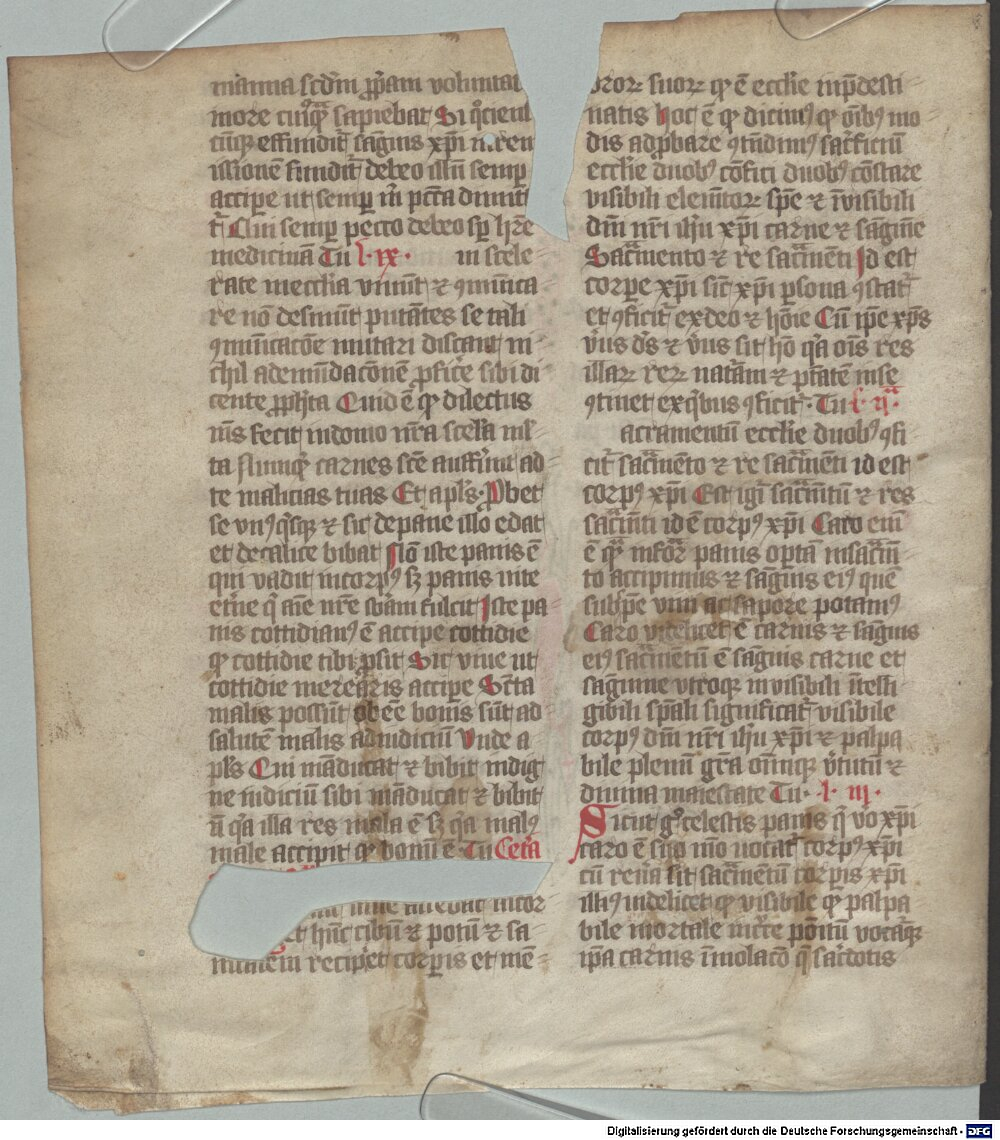 manna scd̄m ꝓp̄am voluntat
more cuiꝰqꝫ sapiebat Si qͦcienſ
cūqꝫ effundit̄ sanguis xp̄i in rem
issionē fundit̄ debeo illū semꝑ
accipe ut semꝑ m̄ pctā dimitt̄
Qui semꝑ pecco debeo sꝑ hr̄e
medicinā Tu l·ix· in scele
rate in eccl̄ia viuūt ⁊ ꝯmūnica
re nō desinūt putātes se tali
ꝯmūnicacōe mutari discant ni
chil ad emūdacōnē ꝓficē sibi di
cente ꝓph̄ta Quid ē ꝙ dilectus
m̄s fecit in domo mea scelera ml̄
ta Nunqͥd carnes scē aufferūt ad
te malicias tuas Et apl̄s Probet
se vnꝰqͥsqꝫ ⁊ sic de pane illo edat
et de calice bibat Nō iste panis ē
qui vadit in corpꝰ sꝫ panis uite
et̄ne q̄ aīe nr̄e sb̄am fulcit Iste pa
nis cottidianꝰ ē accipe cottidie
ꝙ cottidie tibi ꝓsit Sic viue ut
cottidie merearis accipe Sc̄ta
malis possūt obeē bonis sūt ad
salutē malis ad iudiciū Vnde a
pl̄s Qui māducat ⁊ bibit indig
ne iudiciū sibi māducat ⁊ bibit
nō qꝛ illa res mala ē sꝫ qꝛ malꝰ
male accipit ꝙ bonū ē Tu Cet̄a
incor
et hūc cibū ⁊ potū ⁊ sa
recipet corꝑis et mē
oroꝝ suoꝝ ꝙ ē eccl̄ie in p̄desti
natis hoc ē ꝙ dicimꝰ ꝙ oīb᷒ mo
dis adꝓbare ꝯtēdimꝰ sac̄ficiū
eccl̄ie duobꝰ cōfici duobꝰ cōstare
visibili elemētoꝝ spē ⁊ īvisibili
dn̄i nr̄i ih̄u xp̄i carne ⁊ sāguīe
Sacͣmento ⁊ re sacͣmēti Id est
corꝑe xp̄i sic̄ xp̄i ꝑsona ꝯstat
et ꝯficit̄ ex deo ⁊ hoīe Cū ip̄e xp̄s
v̄us ds̄ ⁊ v̄us sit hō qꝛ oīs res
illaꝝ reꝝ natͣam ⁊ v̄tatē in se
ꝯtinet ex qͥbus ꝯficit̄ · Tu l·ijͣ·
acramentū eccl̄ie duobꝰ ꝯfi
cit̄ sacͣmēto ⁊ re sacͣmēti id est
corpꝰ xp̄i Est igit̄ sacͣmtū ⁊ res
sacͣmti id ē corpꝰ xp̄i Caro eiꝰ
ē qͣ in foꝛ̄ panis opt̄ā in sacͣm̄
to accipimus ⁊ sāguis eiꝰ quē
sub spē vini ac sapore potamꝰ
Caro videlicet ē carnis ⁊ sāguis
eiꝰ sacͣmētū ē sāguis carne et
sāguine vtroqꝫ invisibili ītelli
gibili sp̄ali significat̄ visibile
corpꝰ dn̄i nr̄i ih̄u xp̄i ⁊ palpa
bile plenū gr̄a omīqꝫ v̄tutū ⁊
diuina maiestate Tu · l· iij·
Sicut gͦ celestis panis q̄ vo xp̄i
caro ē suo mō uocat̄ corpꝰ xp̄i
cū reuͣa sit sacͣmētū corꝑis xp̄i
illiꝰ uidelicet ꝙ visibile ꝙ palpa
bile mortale in cͬce pōitū vocatqꝫ
ip̄a carnis īmolacō q̄ sac̄dotis
Digitalisierung gefördert durch die Deutsche Forschungsgemeinschaft - DFG